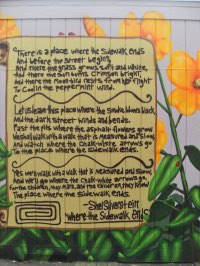 There is a place where the Sidewalk ends
And before the street begins,
And there the grass grows soft and white,
And there the sun burns crimson bright,
And there the moon-bird rests from his flight
To Cool in the peppermint wind.
Let us leave this place where the smoke blows black,
And the dark street winds and bends.
Past the pits where the asphalt flowers grow
We shall walk with a walk that is measured and slow,
And watch where the chalk-white arrows go
To the place where the sidewalk ends.
Yes we'll walk with a walk that is measured and slow,
And we'll go where the chalk-white arrows go,
For the children, they mark, and the children, they know
The place where the sidewalk ends.
-Shel Silverstein
"Where the Sidewalk Ends"